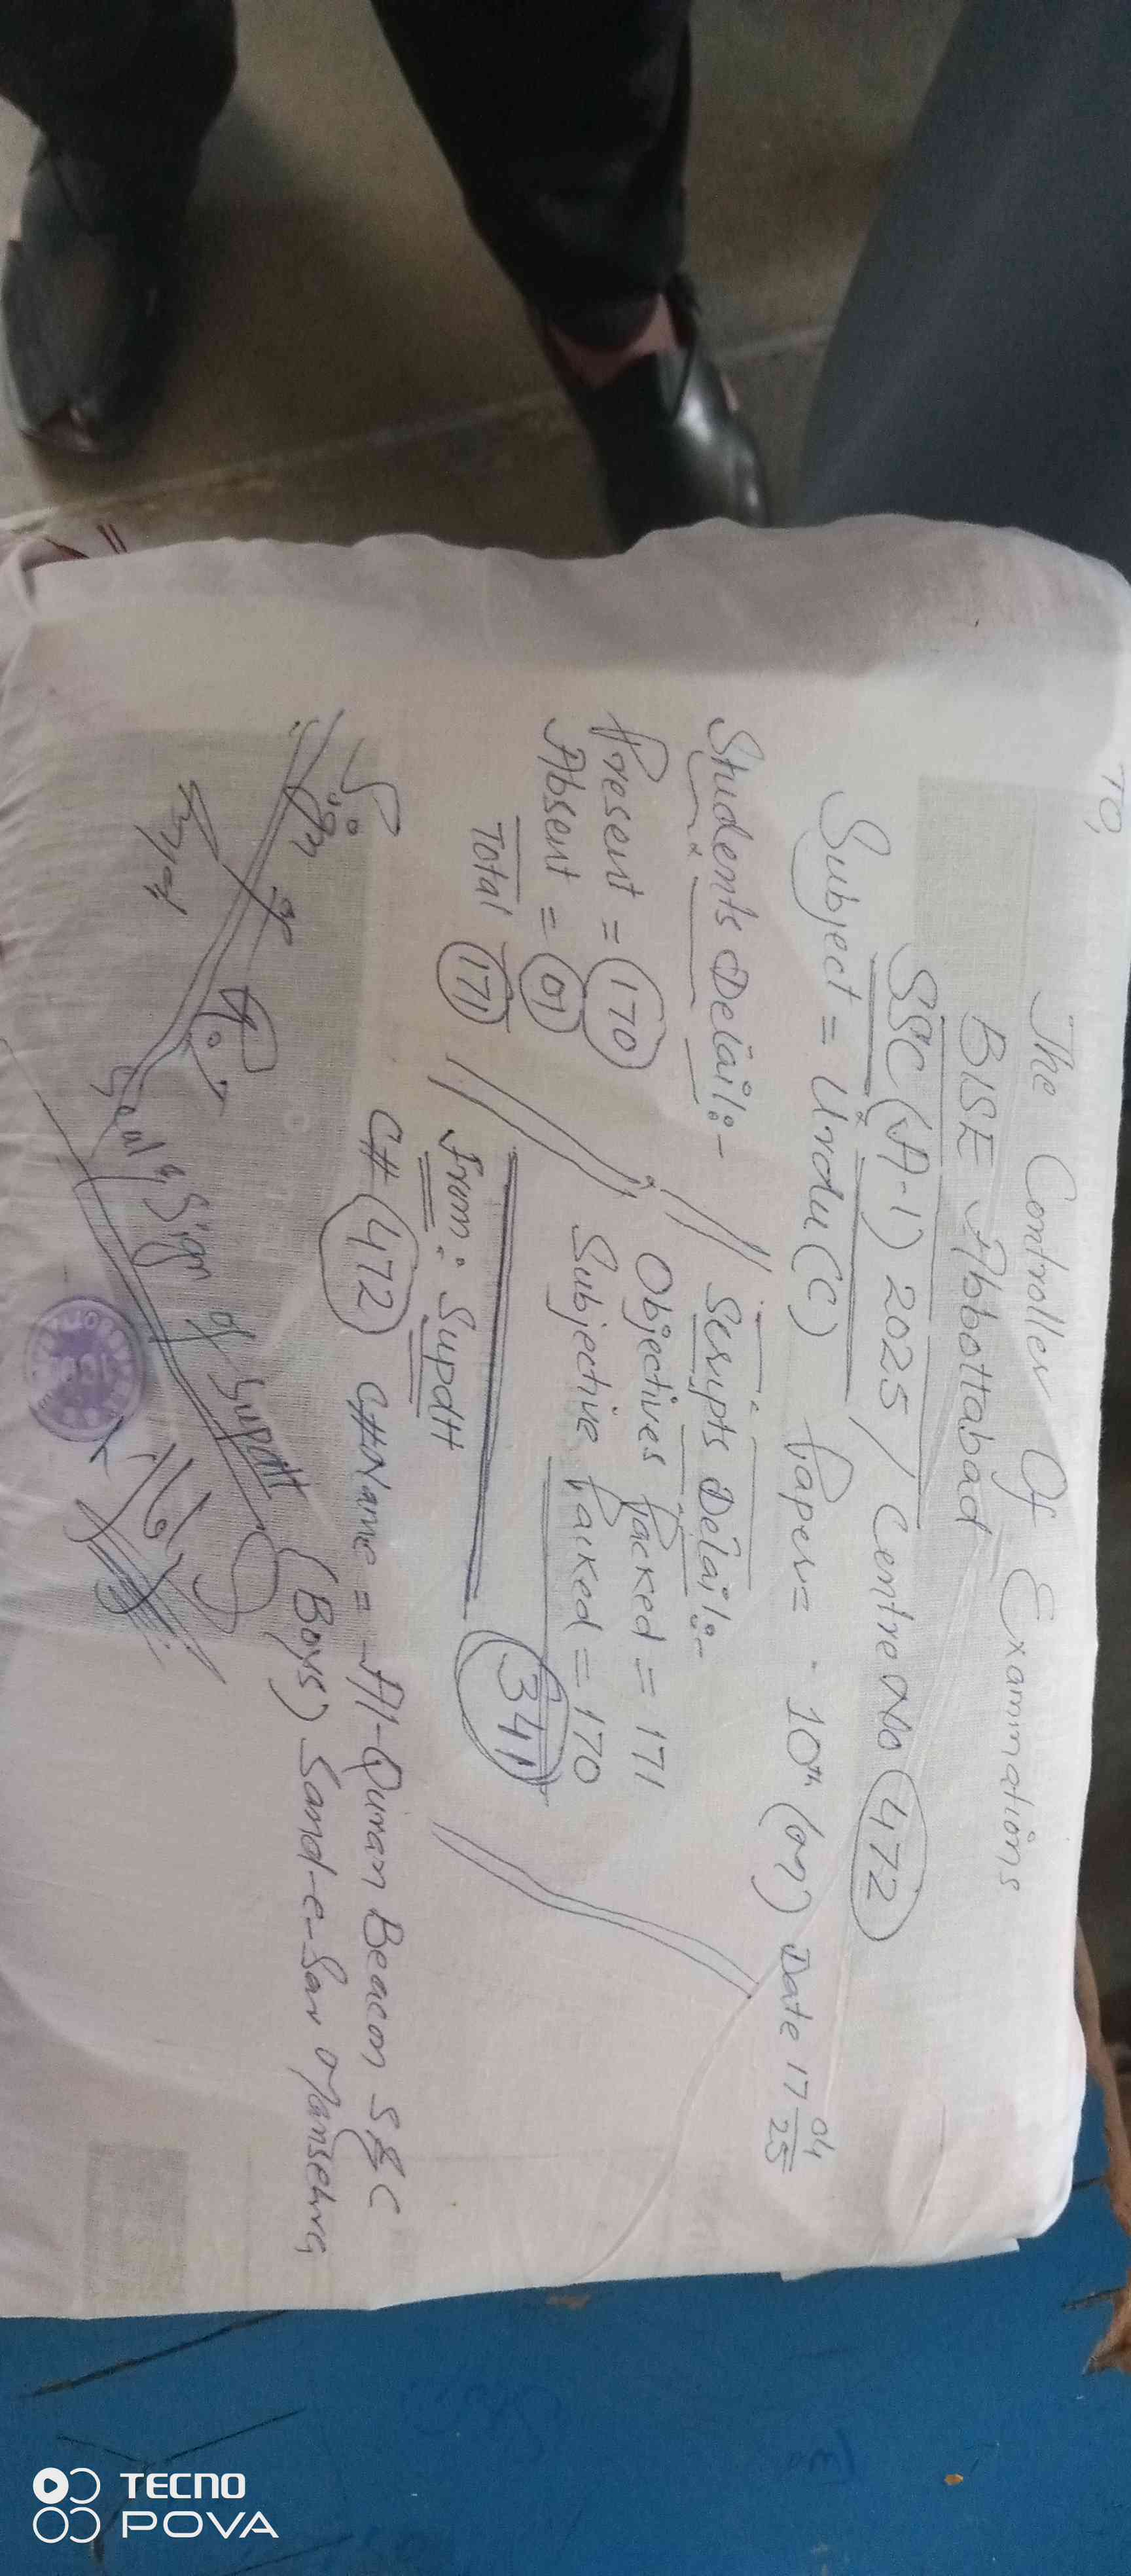 To,
The Controller Of Examinations
BISE Abbottabad
SSC (A-1) 2025 / Centre No 472
Subject = Urdu (C) Paper = 10th (09) Date 17 04 25
Students Detail:-
Present = 170
Absent = 01
Total 171
Scrypts Detail:-
Objectives Packed = 171
Subjective Packed = 170
341
From: Supdtt
CH 472 CHName = Al-Quran Beacon S&C
(Boys) Sand-e-Sar Mansehra
Sign of
Seal & Sign of Supdtt
TECNO
POVA